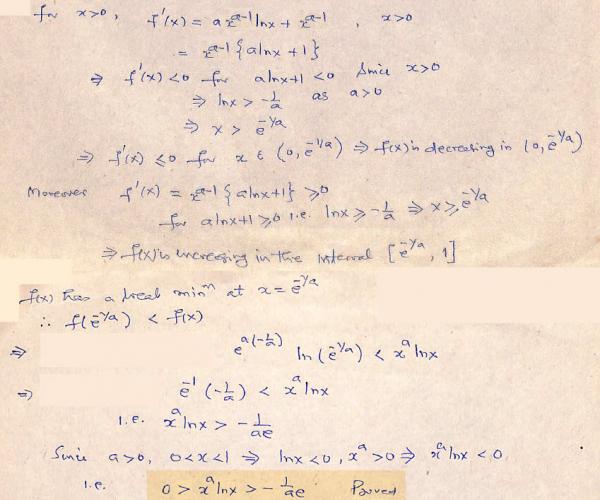 for x>0, f'(x) = a x^{a-1} ln x + x^{a-1} , x>0
= x^{a-1} {a ln x + 1}
⇒ f'(x) < 0 for a ln x + 1 < 0 since x>0
⇒ ln x > -1/a as a>0
⇒ x > e^{-1/a}
⇒ f'(x) ≤ 0 for x ∈ (0, e^{-1/a}) ⇒ f(x) is decreasing in (0, e^{-1/a})
Moreover f'(x) = x^{a-1} {a ln x + 1} ≥ 0
for a ln x + 1 ≥ 0 i.e. ln x ≥ -1/a ⇒ x ≥ e^{-1/a}
⇒ f(x) is increasing in the interval [e^{-1/a}, 1]
f(x) has a local min^m at x = e^{-1/a}
∴ f(e^{-1/a}) < f(x)
⇒ e^{a(-1/a)} ln(e^{-1/a}) < x^a ln x
⇒ e^{-1} (-1/a) < x^a ln x
i.e. x^a ln x > -1/ae
Since a>0, 0<x<1 ⇒ ln x < 0, x^a > 0 ⇒ x^a ln x < 0
i.e. 0 > x^a ln x > -1/ae Proved